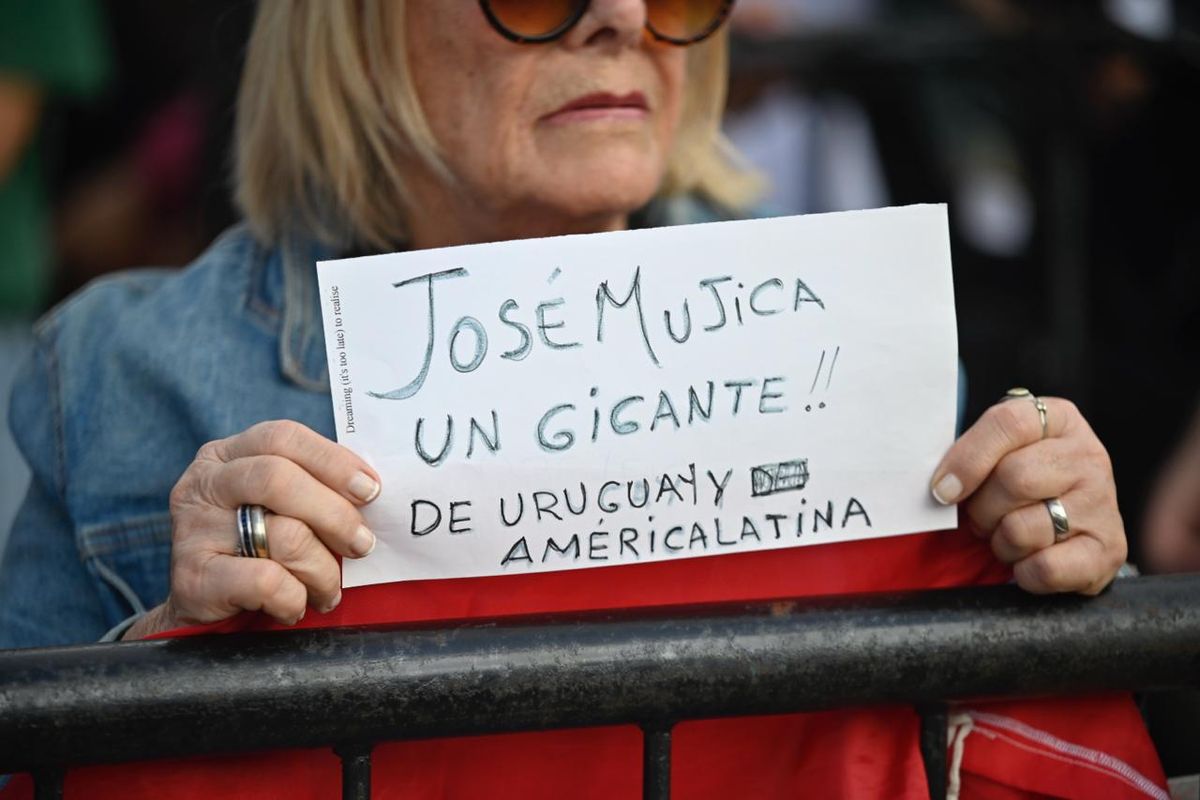 Dreaming (it's too late) to realise
JOSÉ MUJiCA
UN GiGANTE!!
DE URUGUAY Y
AMÉRiCALATiNA